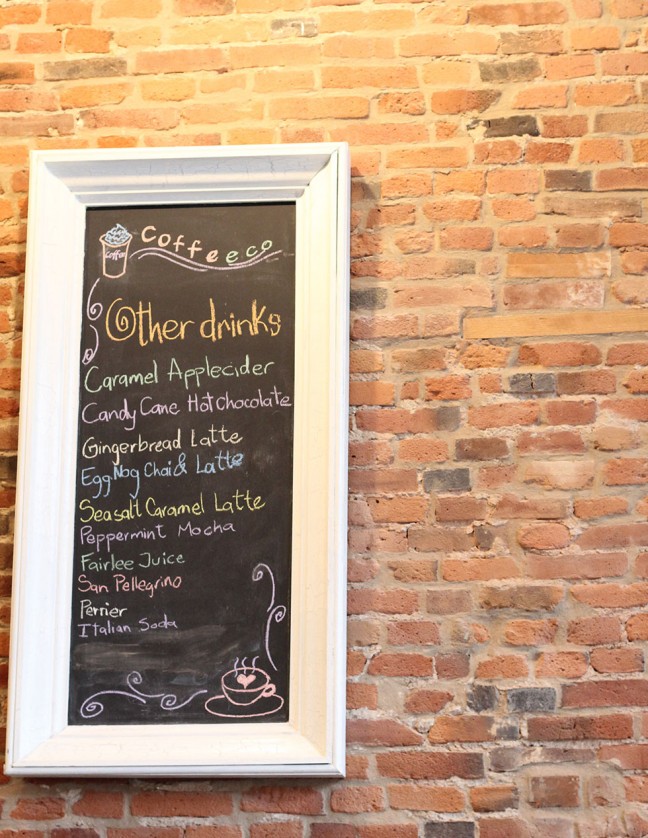 Coffeeco
Coffee
Other drinks
Caramel Applecider
Candy Cane Hot Chocolate
Gingerbread Latte
Egg Nog Chai & Latte
Seasalt Caramel Latte
Peppermint Mocha
Fairlee Juice
San Pellegrino
Perrier
Italian Soda